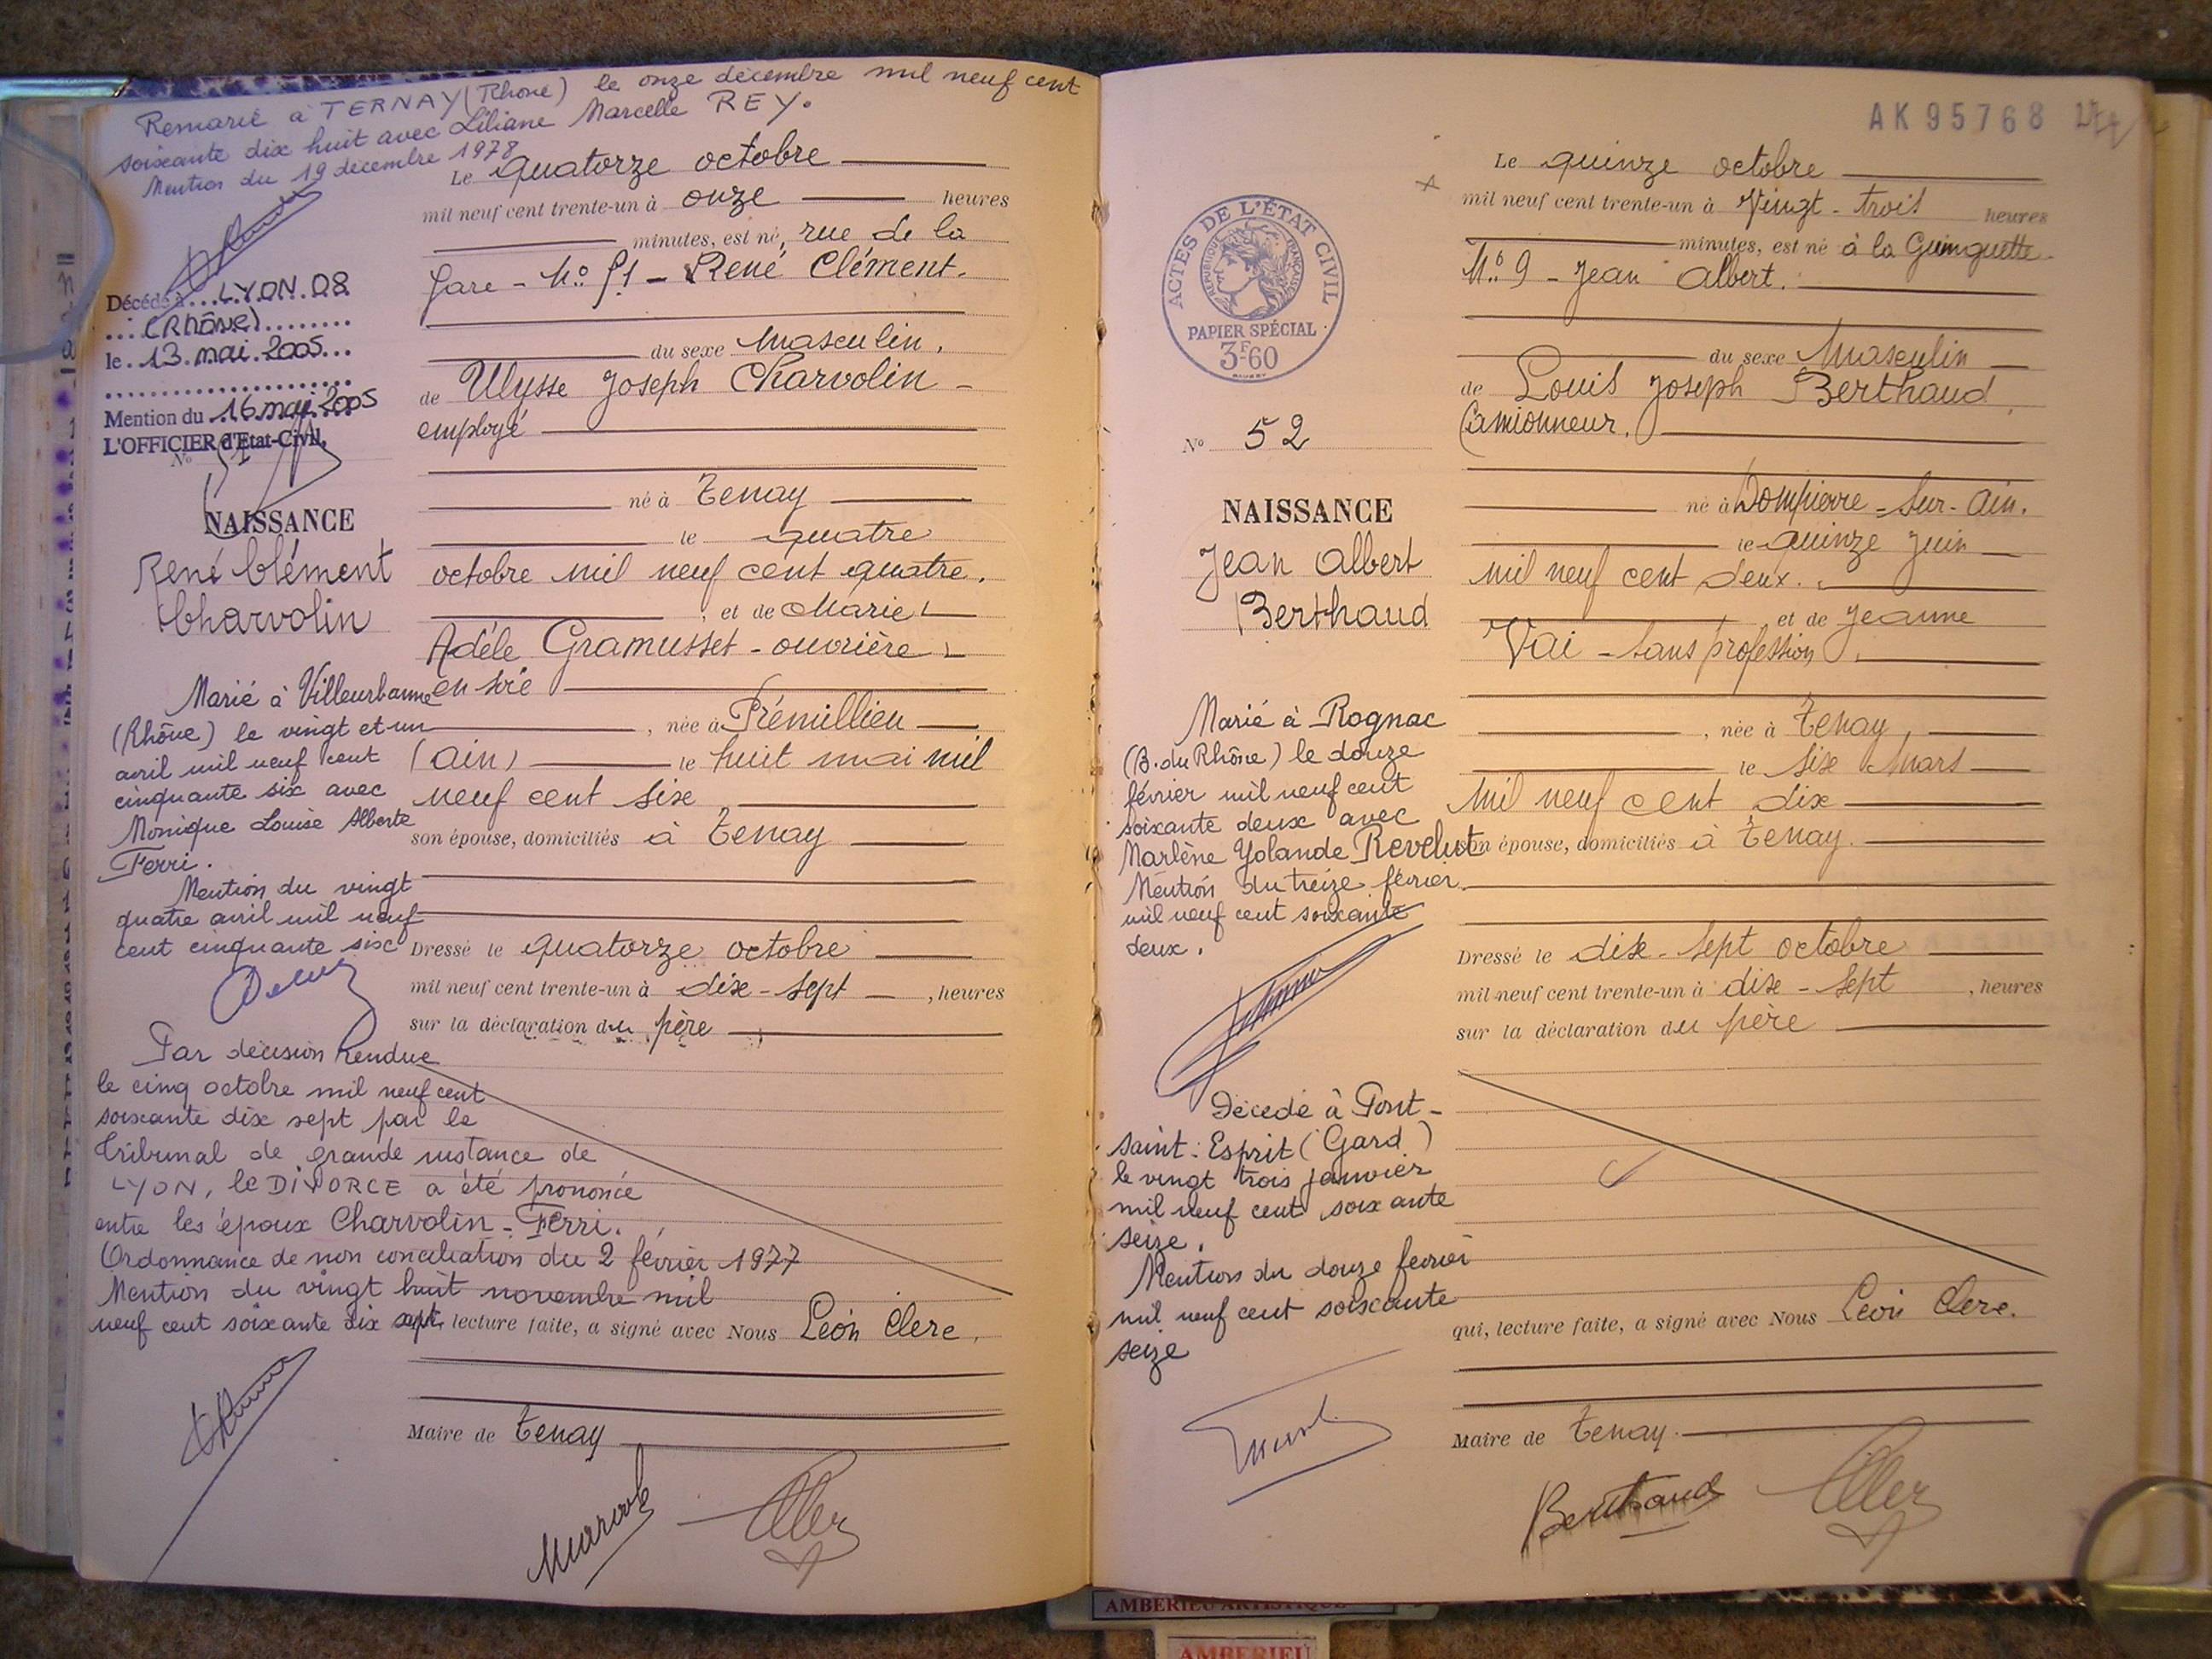 Remarié à TERNAY (Rhone) le onze décembre mil neuf cent
soixante dix huit avec Liliane Marcelle REY.
Mention du 19 décembre 1978
Décédé à LYON 08
(Rhône)
le 13 mai 2005
Mention du 16 mai 2005
L'OFFICIER d'Etat-Civil,
No 51
NAISSANCE
René Clément
Charvolin
Marié à Villeurbanne
(Rhône) le vingt et un
avril mil neuf cent
cinquante six avec
Monique Louise Alberte
Ferri.
Mention du vingt
quatre avril mil neuf
cent cinquante six
Par décision rendue
le cinq octobre mil neuf cent
soixante dix sept par le
Tribunal de grande instance de
LYON, le DIVORCE a été prononcé
entre les époux Charvolin - Ferri.
Ordonnance de non conciliation du 2 février 1977
Mention du vingt huit novembre mil
neuf cent soixante dix sept.
Le quatorze octobre
mil neuf cent trente-un à onze heures
minutes, est né, rue de la
Gare - No 51 - René Clément.
du sexe Masculin,
de Ulysse Joseph Charvolin -
employé
né à Tenay
le quatre
octobre mil neuf cent quatre.
, et de Marie
Adèle Gramusset - ouvrière
en soie
, née à Prémillieu
(Ain) le huit mai mil
neuf cent six
son épouse, domiciliés à Tenay
Dressé le quatorze octobre
mil neuf cent trente-un à dix-sept , heures
sur la déclaration du père
lecture faite, a signé avec Nous Léon Clerc,
Maire de Tenay
AK 95768
ACTES DE L'ÉTAT CIVIL
RÉPUBLIQUE FRANÇAISE
PAPIER SPÉCIAL
3F60
No 52
NAISSANCE
Jean Albert
Berthaud
Marié à Rognac
(B. du Rhône) le douze
février mil neuf cent
soixante deux avec
Marlène Yolande Revelut
Mention du treize février
mil neuf cent soixante
deux.
Décédé à Pont-
Saint-Esprit (Gard)
le vingt trois janvier
mil neuf cent soixante
seize.
Mention du douze fevrier
mil neuf cent soixante
seize
Le quinze octobre
mil neuf cent trente-un à Vingt-trois heures
minutes, est né à la Guinguette
No 9 - Jean Albert.
du sexe Masculin
de Louis Joseph Berthaud,
Camionneur.
né à Dompierre-sur-Ain.
le quinze Juin
mil neuf cent deux.
et de Jeanne
Vai - sans profession
, née à Tenay,
le six Mars
mil neuf cent dix
son épouse, domiciliés à Tenay.
Dressé le dix-sept octobre
mil neuf cent trente-un à dix-sept , heures
sur la déclaration du père
qui, lecture faite, a signé avec Nous Léon Clerc.
Maire de Tenay.
Berthaud
AMBERIEU ARTISTIQUE
AMBERIEU